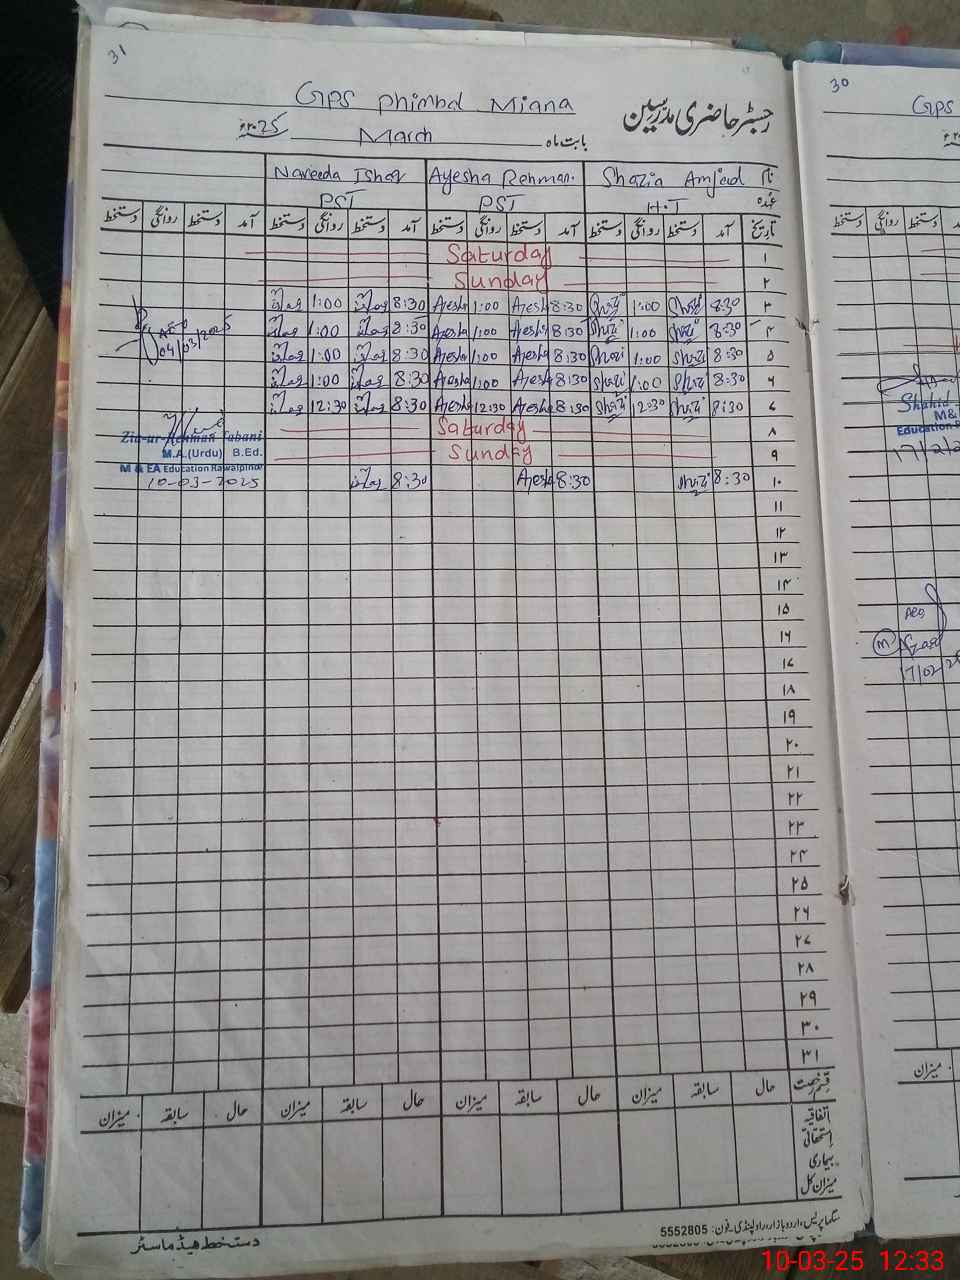 31
GPS phimbal Miana
رجسٹر حاضری مدرسین
بابت ماہ March 2025ء
نام Shazia Amjed Ayesha Rehman. Naveeda
عہدہ H.T PST PST
تاریخ آمد دستخط روانگی دستخط آمد دستخط روانگی دستخط آمد دستخط روانگی دستخط آمد دستخط روانگی دستخط
۱ Saturday
۲ Sunday
۳ 8:30 Shazi 1:00 Shazi 8:30 Ayesha 1:00 Ayesha 8:30 1:00
۴ 8:30 Shazi 1:00 Shazi 8:30 Ayesha 1:00 Ayesha 8:30 1:00
۵ 8:30 Shazi 1:00 Shazi 8:30 Ayesha 1:00 Ayesha 8:30 1:00
۶ 8:30 Shazi 1:00 Shazi 8:30 Ayesha 1:00 Ayesha 8:30 1:00
۷ 8:30 Shazi 12:30 Shazi 8:30 Ayesha 12:30 Ayesha 8:30 12:30
۸ Saturday
۹ Sunday
۱۰ 8:30 Shazi 8:30 Ayesha 8:30
AEO
04/03/2025
Zia-ur-Rehman Tabani
M.A.(Urdu) B.Ed.
M & EA Education Rawalpindi
10-03-2025
۱۱
۱۲
۱۳
۱۴
۱۵
۱۶
۱۷
۱۸
۱۹
۲۰
۲۱
۲۲
۲۳
۲۴
۲۵
۲۶
۲۷
۲۸
۲۹
۳۰
۳۱
قسم رخصت حال سابقہ میزان حال سابقہ میزان حال سابقہ میزان حال سابقہ میزان
اتفاقیہ
استحقاقی
بیماری
میزان کل
دستخط ہیڈ ماسٹر
پریس، اردو بازار، راولپنڈی۔ فون: 5552805
30
GPS
Shahid
M&
Education R
17/2/2
AEO
17/02/25
میزان
10-03-25 12:33